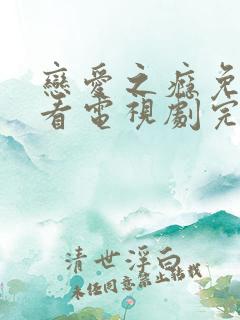 戀愛之癮免
看電視劇完
清世浮白
未经同意禁止转载